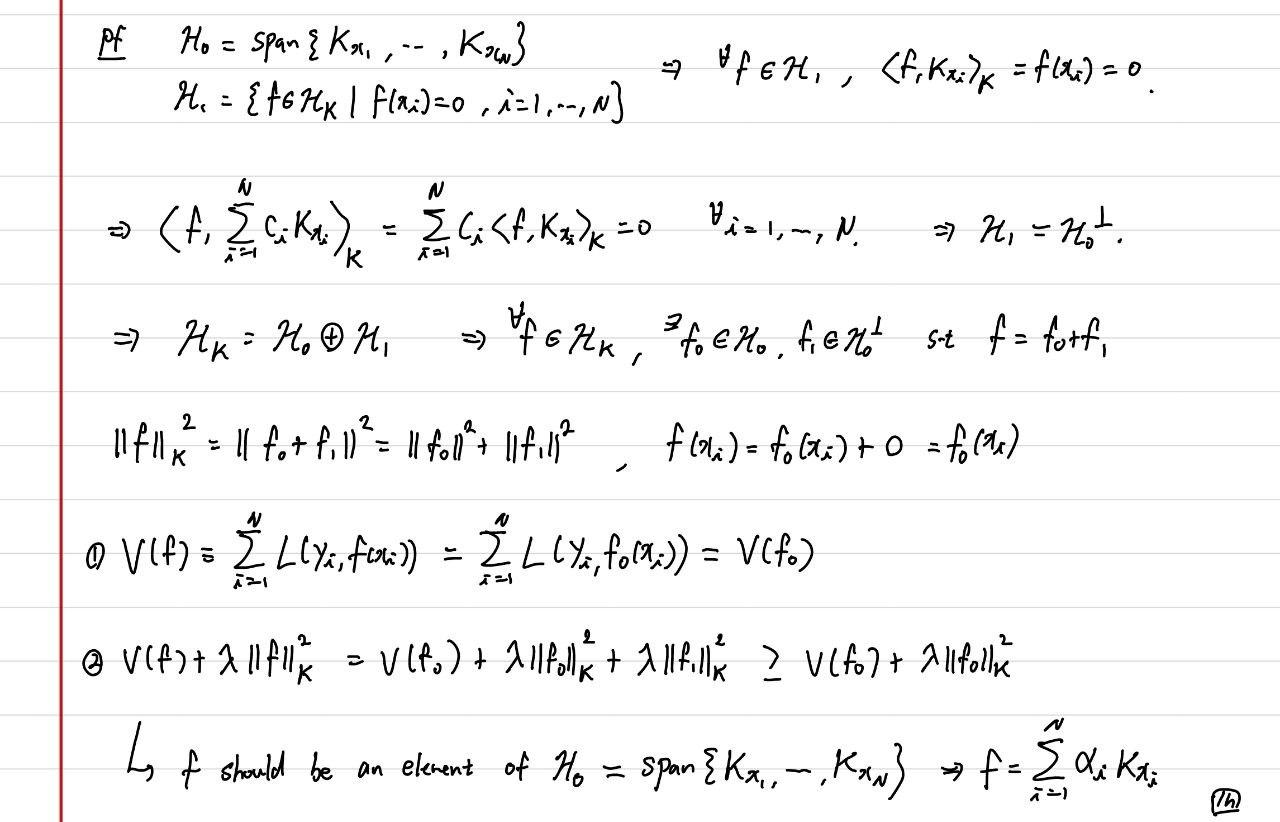 Pf H₀ = span{Kₓ₁, ⋯, Kₓ_N}
H₁ = {f∈H_K | f(xᵢ)=0, i=1,⋯,N} ⇒ ∀f ∈ H₁, ⟨f, Kₓᵢ⟩_K = f(xᵢ) = 0.
⇒ ⟨f, ∑_{i=1}^N cᵢKₓᵢ⟩_K = ∑_{i=1}^N cᵢ⟨f, Kₓᵢ⟩_K = 0 ∀i = 1, ⋯, N. ⇒ H₁ = H₀^⊥.
⇒ H_K = H₀ ⊕ H₁ ⇒ ∀f ∈ H_K, ∃f₀ ∈ H₀, f₁ ∈ H₀^⊥ s.t f = f₀+f₁
||f||_K² = ||f₀ + f₁||² = ||f₀||² + ||f₁||², f(xᵢ) = f₀(xᵢ) + 0 = f₀(xᵢ)
① V(f) = ∑_{i=1}^N L(yᵢ, f(xᵢ)) = ∑_{i=1}^N L(yᵢ, f₀(xᵢ)) = V(f₀)
② V(f) + λ||f||_K² = V(f₀) + λ||f₀||_K² + λ||f₁||_K² ≥ V(f₀) + λ||f₀||_K²
↳ f should be an element of H₀ = span{Kₓ₁, ⋯, Kₓ_N} ⇒ f = ∑_{i=1}^N αᵢ Kₓᵢ